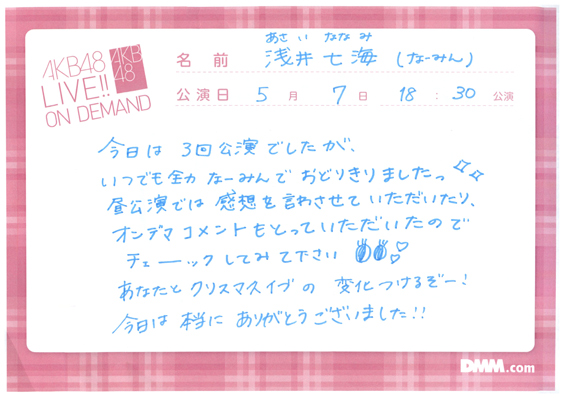 AKB48
LIVE!!
ON DEMAND
AKB
48
あさ い なな み
名前 浅井七海 (なーみん)
公演日 5月 7日 18:30 公演
今日は 3回公演でしたが、
いつでも全力 なーみんで おどりきりましたっ
昼公演では 感想を言わさせて いただいたり、
オンデマ コメントもとっていただいたので
チェーーックしてみて下さい
あなたと クリスマスイブの 変化つけるぞー!
今日は 本当に ありがとうございました!!
DMM.com